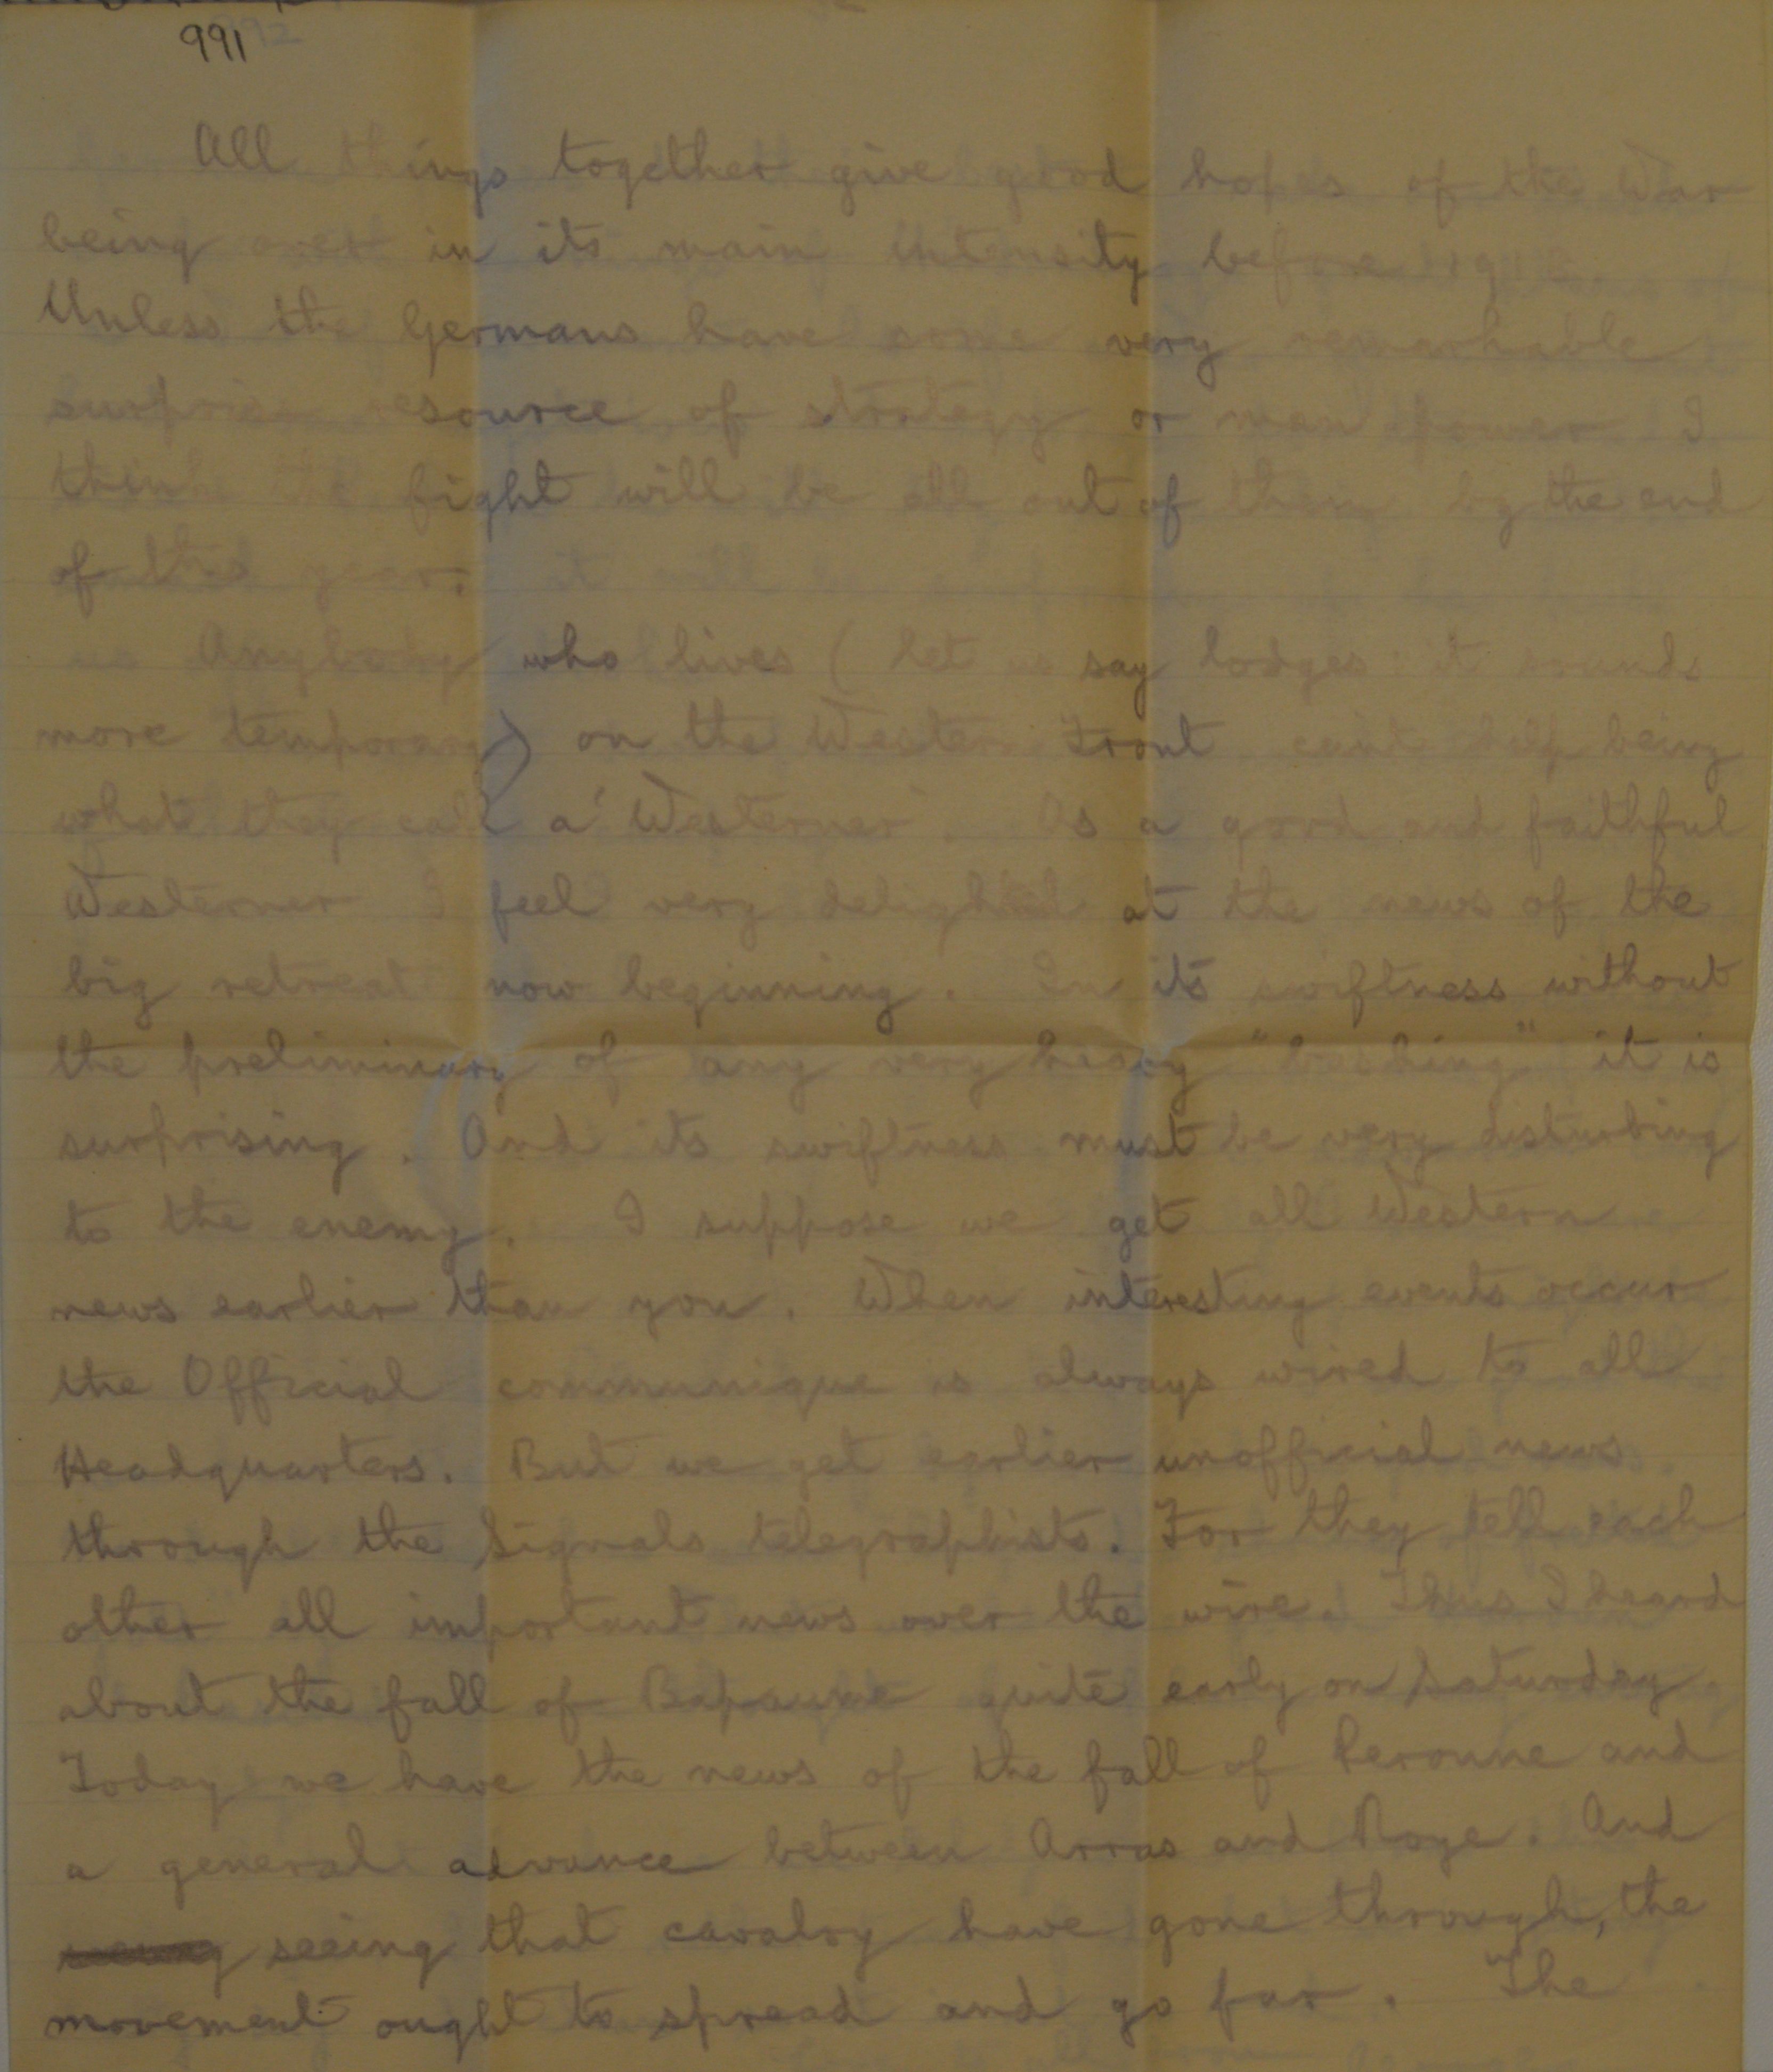 991
All things together give good hopes of the War
being over in its main intensity before 1918.
Unless the Germans have some very remarkable
surprise resource of strategy or man power I
think the fight will be all out of them by the end
of this year.
Anybody who lives (let us say lodges: it sounds
more temporary) on the Western Front can't help being
what they call a 'Westerner'. As a good and faithful
Westerner I feel very delighted at the news of the
big retreat now beginning. In its swiftness without
the preliminary of any very heavy "bashing" it is
surprising. And its swiftness must be very disturbing
to the enemy. I suppose we get all Western
news earlier than you. When interesting events occur
the Official communique is always wired to all
Headquarters. But we get earlier unofficial news
through the Signals telegraphists. For they tell each
other all important news over the wire. Thus I heard
about the fall of Bapaume quite early on Saturday.
Today we have the news of the fall of Peronne and
a general advance between Arras and Roye. And
seeing that cavalry have gone through, the
movement ought to spread and go far. The